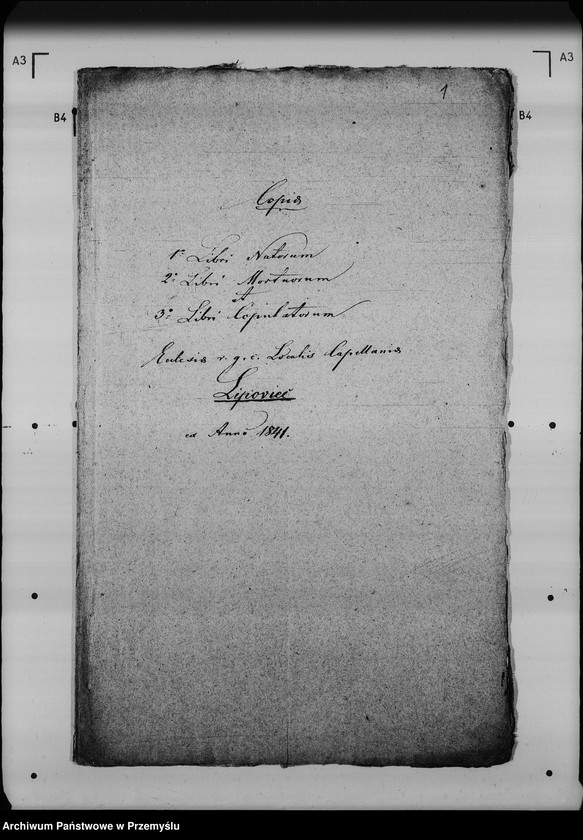 A3
A3
B4
B4
1
Copia
1º Libri Natorum
2º Libri Mortuorum
et
3º Libri Copulatorum
Eclesia r. g. c. Localis Capellania
Lipovieć
ex Anno 1841.
Archiwum Państwowe w Przemyślu